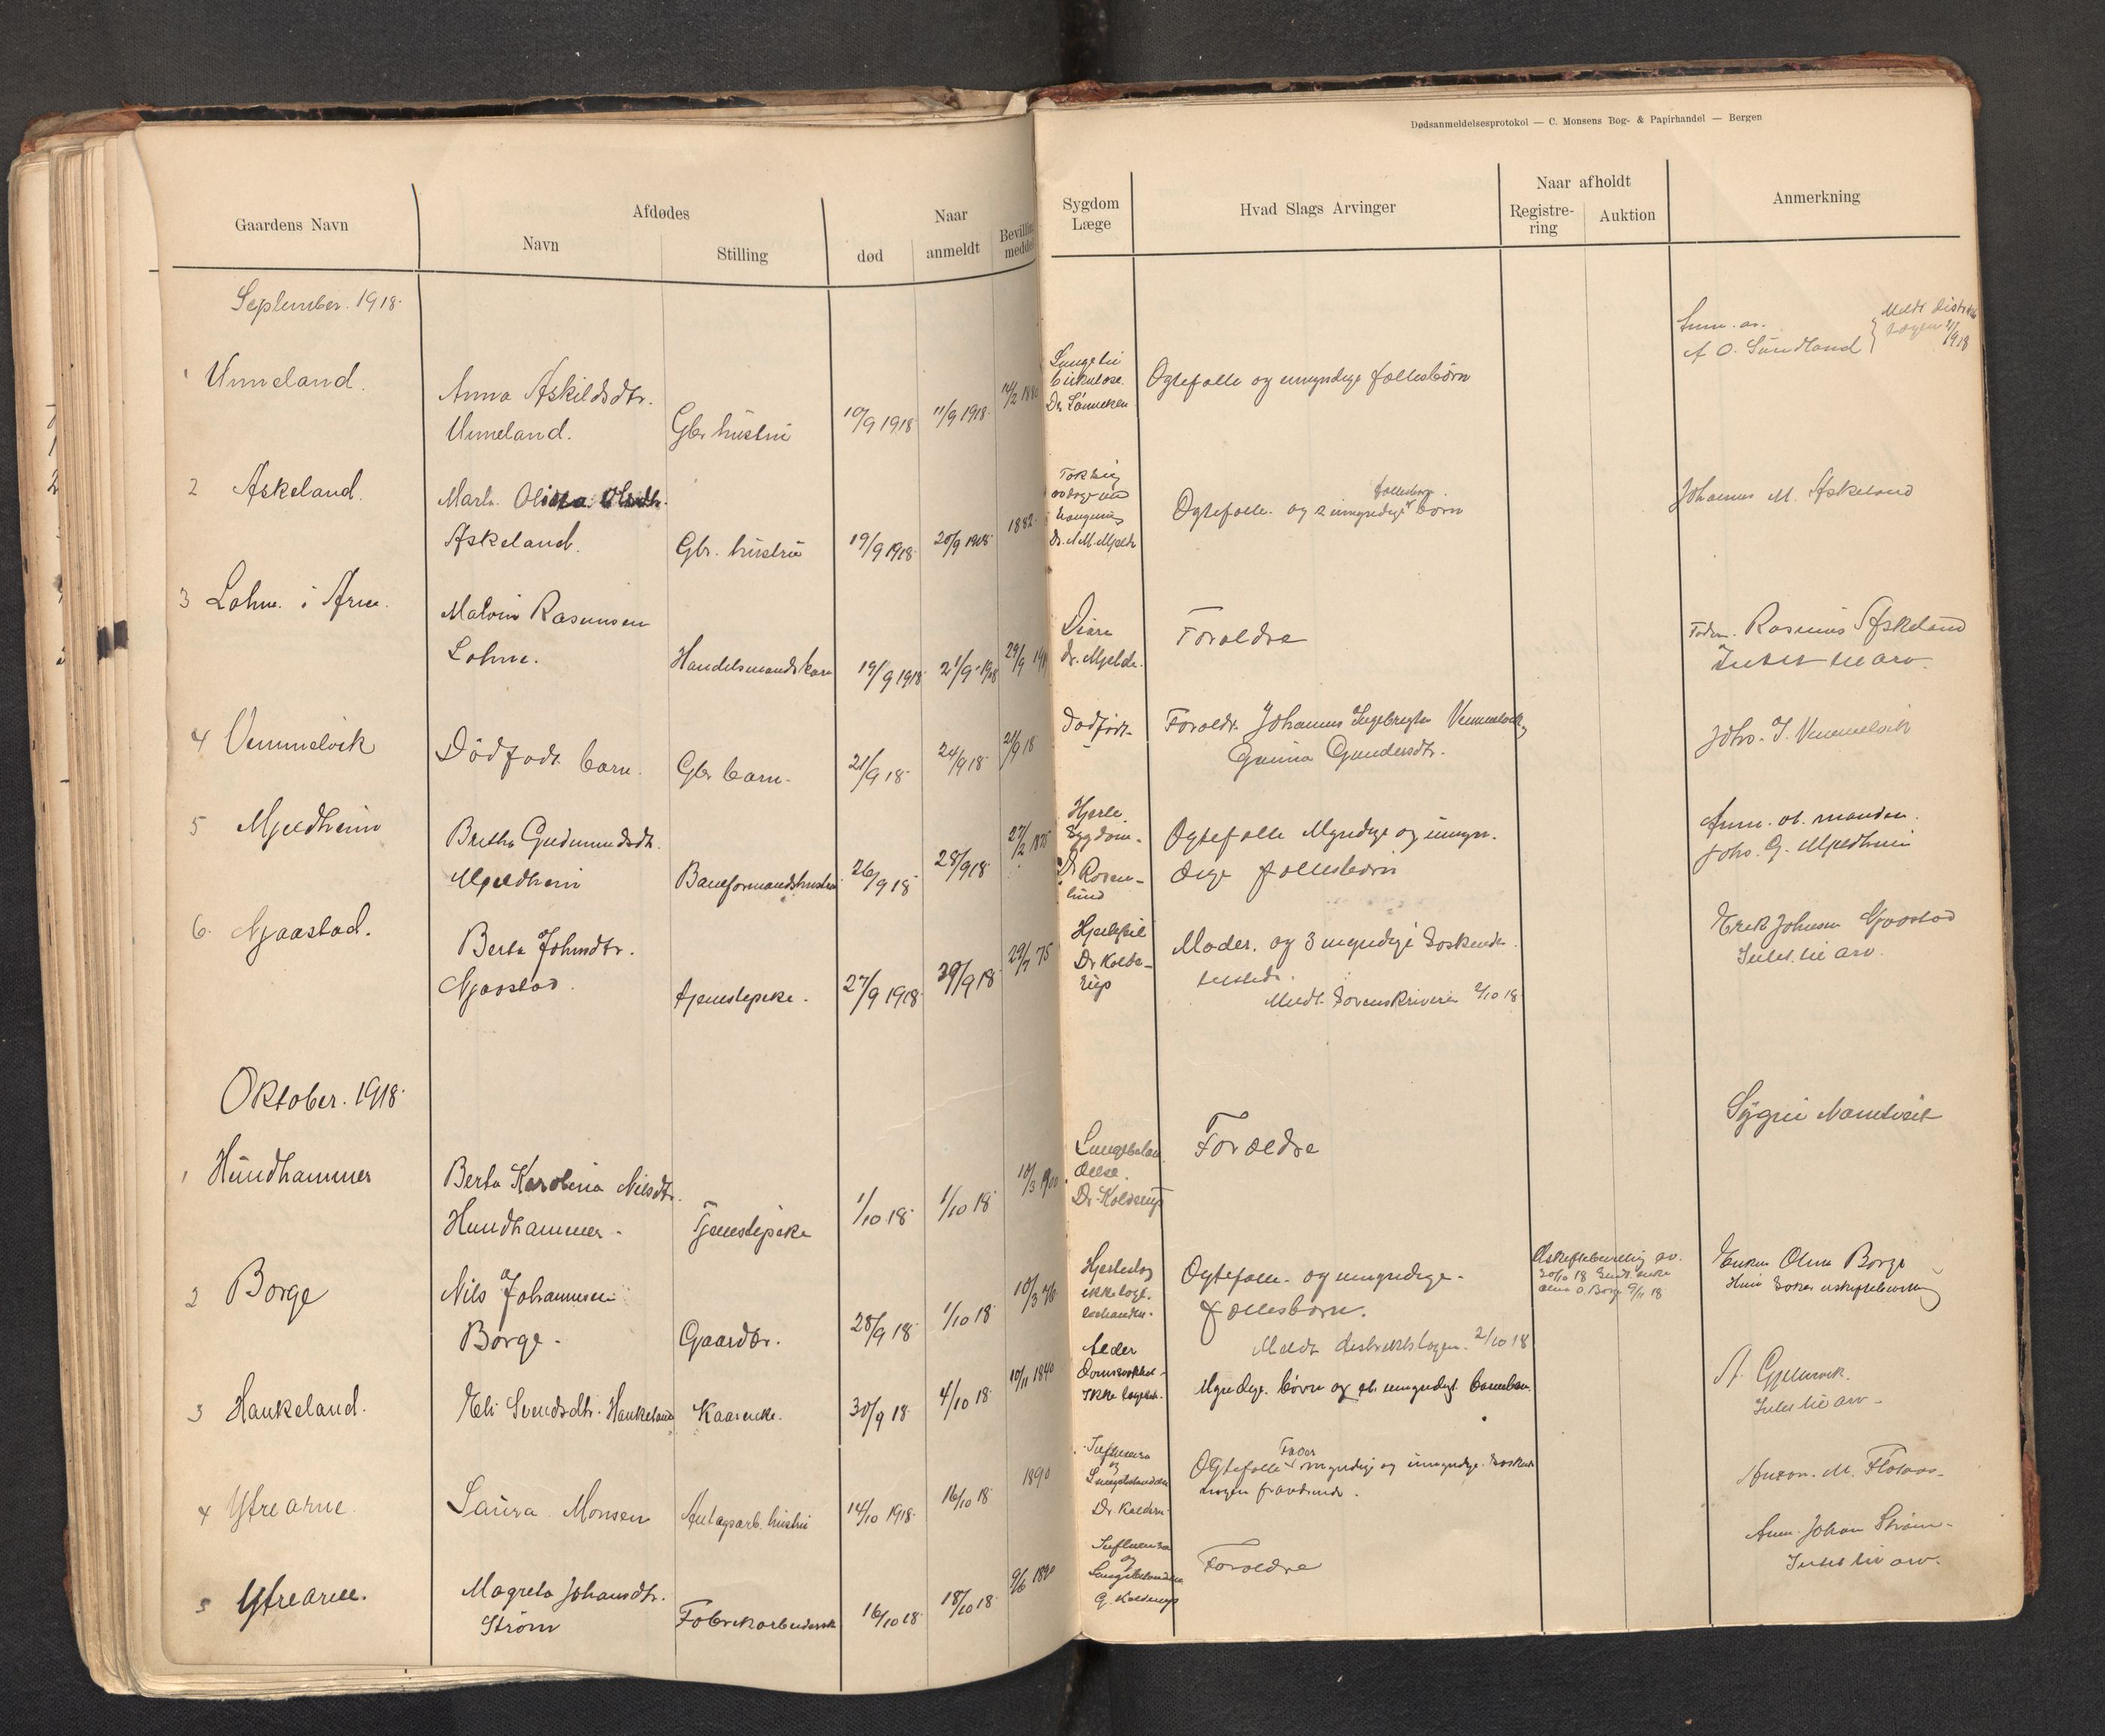 Dødsanmeldelsesprotokol — C. Monsens Bog- & Papirhandel — Bergen
Gaardens Navn
Afdødes
Navn
Stilling
Naar
død
anmeldt
Bevilling
meddel
Sygdom
Læge
Hvad Slags Arvinger
Naar afholdt
Registre-
ring
Auktion
Anmerkning
September. 1918.
1 Unneland.
Anna Askildsdtr.
Unneland.
Gbr hustru
10/9 1918
11/9 1918
Dr.
Ogtefolle og umyndige follesbörn
Anm. av.
A O. Sundland
Meldt
2 Askeland.
Marta
Askeland.
Gbr. hustru
19/9 1918
20/9 1918
1882
Ogtefolle. og 2 umyndige börn
Johannes M. Askeland
3 Lohne. i Arne.
Malvin Rasmusen
Lohne.
Handelsmandsbarn
19/9 1918
21/9 1918
29/9
Dr. Mjelde.
Foroldre
Faderen. Rasmus Askeland
Intet til arv.
4 Vemmelvik
Dödfödt barn.
Gbr barn.
21/9 18
24/9 18
21/9 18
Dodfödt.
Foroldr. Johannes Ingebrigtsn Vemmelvik
Gunna Gundersdtr.
Johs. I. Vemmelvik
5 Mjeldheim
Bretha Gudmundsdtr.
Mjeldheim
Baneformandshustru
26/9 18
28/9 18
27/2 1875
Hjerte
Sygdom.
Dr Rosen-
lund
Ogtefolle Myndige og umyn-
dige follesbörn
Anm. av. manden.
Johs. G. Mjeldheim
6. Gjaastad.
Berta Johnsdtr.
Gjaastad.
tjenestepike.
27/9 1918
29/7 75
Hjertefeil
Dr Kolde-
rup
Moder. og 3 myndige soskende
Meldt. Sorenskriveren 2/10 18
Erik Johnsen Gjaastad
Intet til arv.
Oktober. 1918.
1 Hundhammer
Berta Karolina Nilsdtr.
Hundhammer.
Tjenestepike
1/10 18
1/10 18
10/3 1900
Lungebeten
delse.
Dr. Kolderup
Foroldre
2 Borge
Nils Johannesen
Borge.
Gaardbr.
28/9 18
1/10 18
Hjerteslag
ikke læge.
Ogtefolle. og umyndige.
follesbörn.
Meldt distriktslægen. 2/10 18
Uskiftebevilling av.
30/10 18 Sendt enke
Olina O. Borge 9/11 18
Enken Olina Borge
Hun soker uskiftebevilling
3 Haukeland.
Eli Svendsdtr. Haukeland
Kaarenke.
30/9 18
4/10 18
10/11 1840
Alder
Ikke
Myndige. börn og et umyndigt barnebarn.
A. Gjelmvik.
Intet til arv.
4 Ytre arne.
Laura Monsen
Anlagsarb. hustru
14/10 1918
16/10 18
1890
Influensa
og
Lungebetendelse
Dr. Kolderu
Ogtefolle Fader myndig og umyndige. soskende
Anton. M. Flotaas.
5 Ytrearne.
Magreta Johansdtr.
Strøm
Fabrikarbeiderske
16/10 18
18/10 18
Influensa
og
Lungebetendelse
G. Kolderup
Foroldre
Anm. Johan Strøm.
Intet til arv.